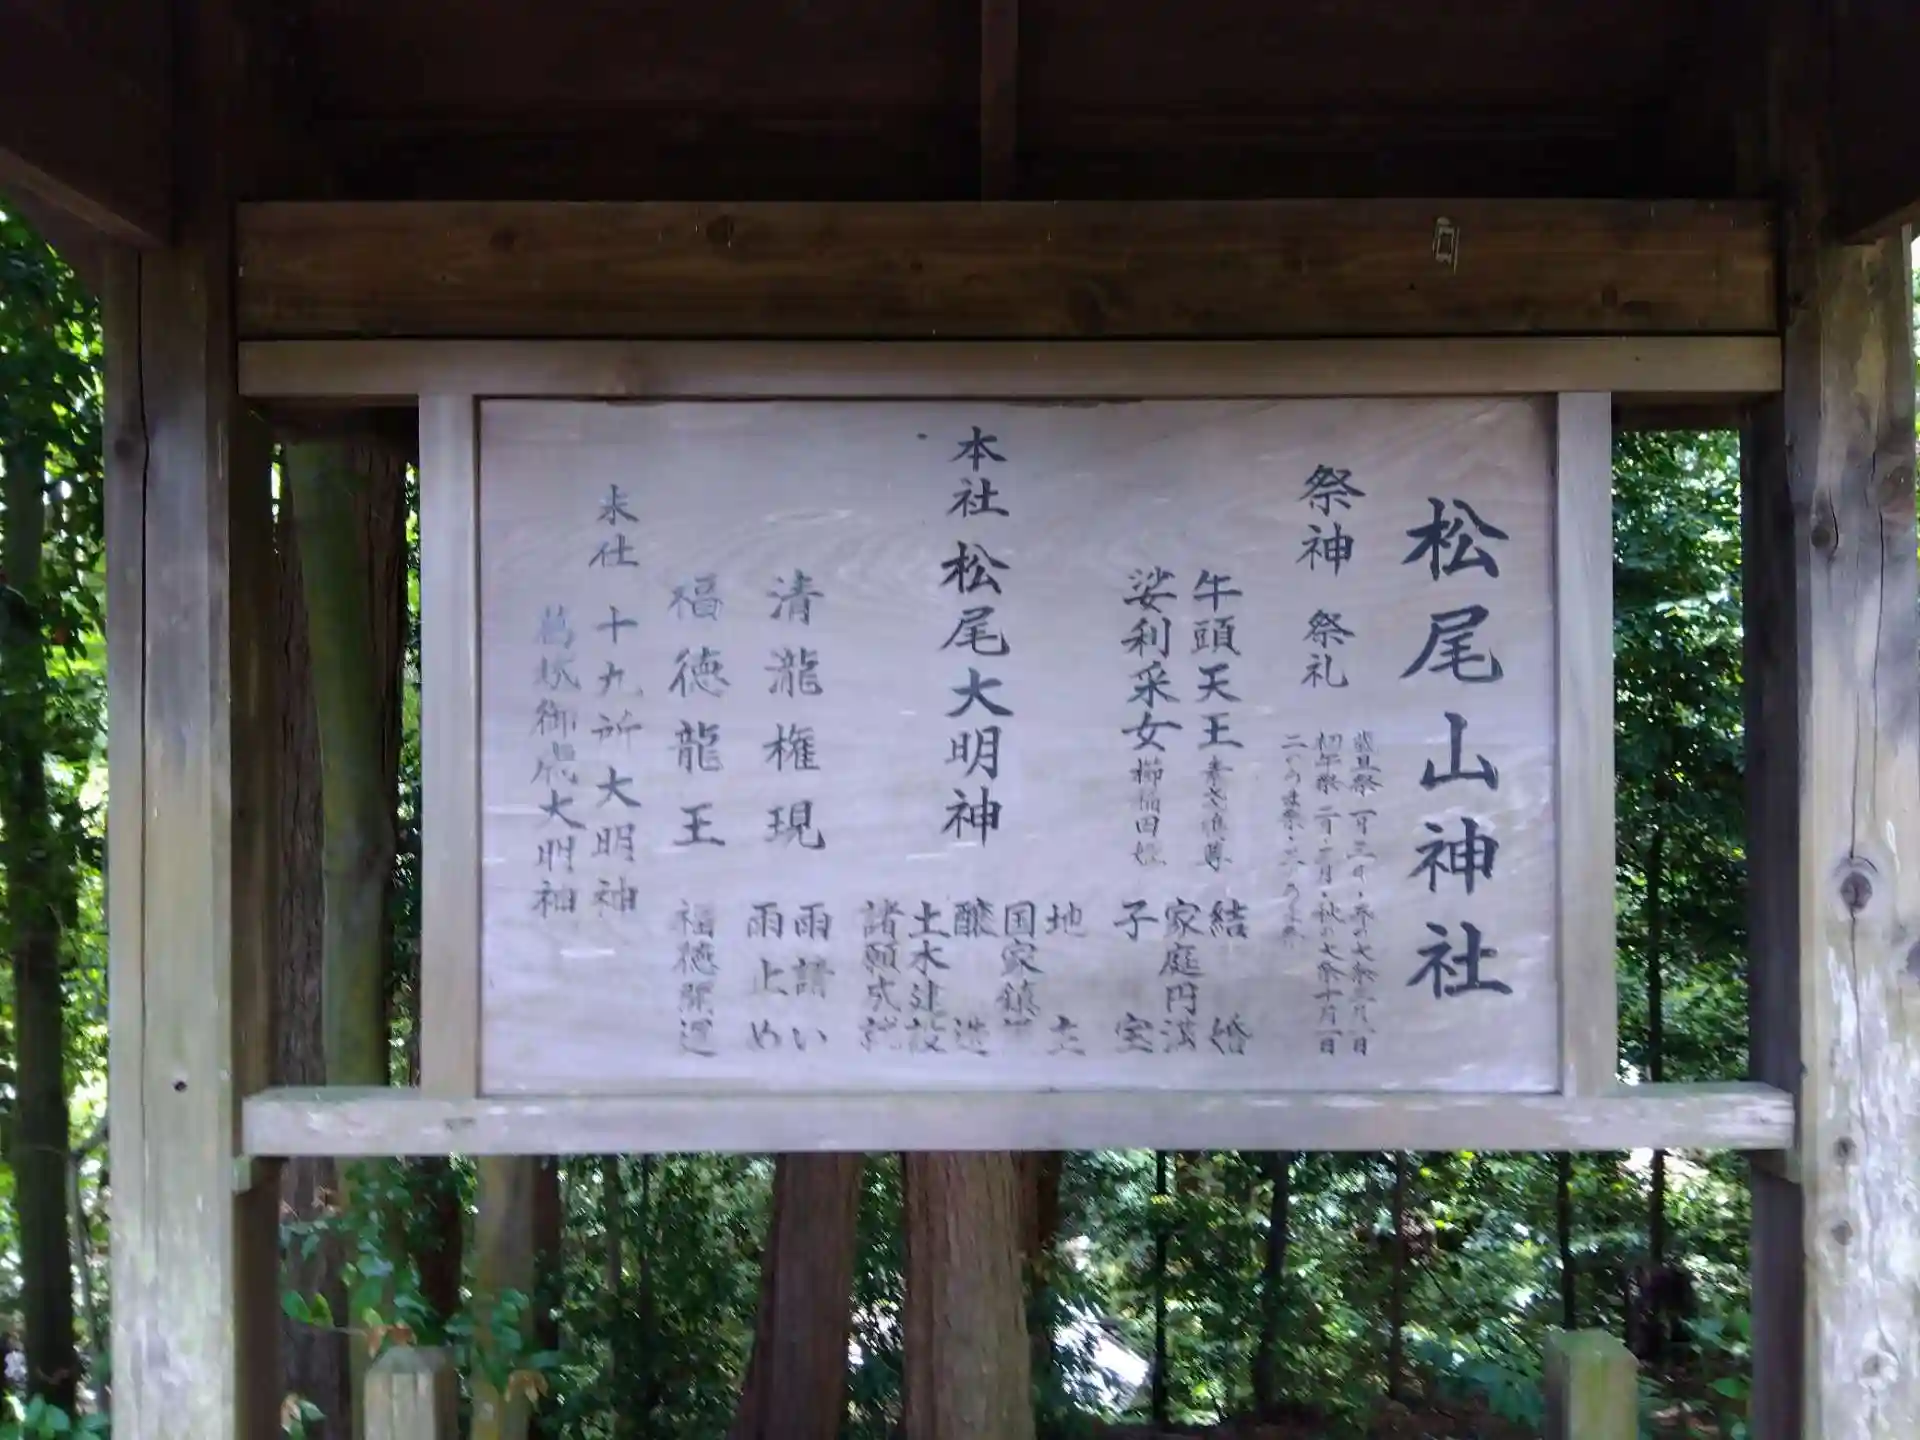 松尾山神社
祭神 祭礼
歳旦祭 一月三日・春の大祭三月一日
初午祭 二月・三月・秋の大祭十月一日
二のうま祭・三のうま祭
牛頭天王 素戔嗚尊
娑利采女 櫛稲田姫
結婚
家庭円満
子宝
本社 松尾大明神
地主
国家鎮
醸造
土木建設
諸願成就
清瀧権現
雨請い
雨止め
福徳龍王
福徳開運
末社 十九所大明神
御歳大明神